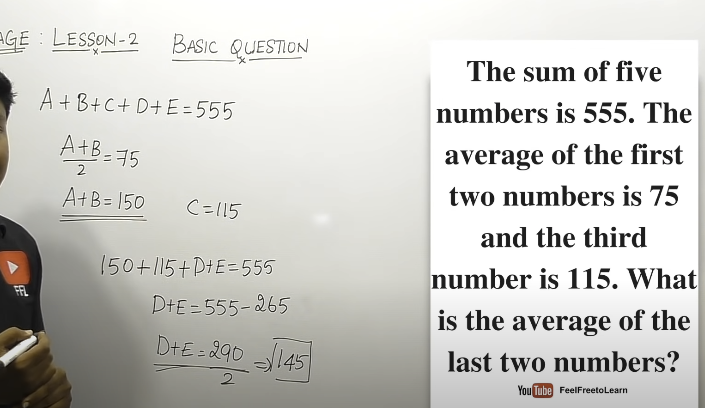 AGE : LESSON-2 BASIC QUESTION
A+B+C+D+E=555
A+B/2=75
A+B=150 C=115
150+115+D+E=555
D+E=555-265
D+E=290/2 ⇒ √145
FFL
The sum of five
numbers is 555. The
average of the first
two numbers is 75
and the third
number is 115. What
is the average of the
last two numbers?
YouTube FeelFreetoLearn